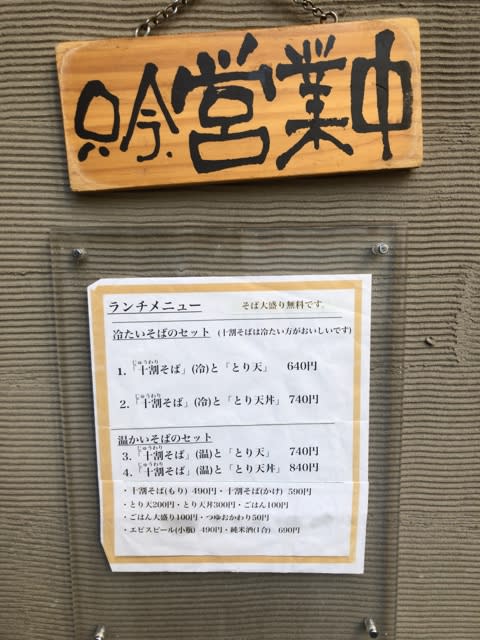 只今営業中
ランチメニュー そば大盛り無料です。
冷たいそばのセット (十割そばは冷たい方がおいしいです)
じゅうわり
1. 「十割そば」(冷)と「とり天」 640円
じゅうわり
2. 「十割そば」(冷)と「とり天丼」 740円
温かいそばのセット
じゅうわり
3. 「十割そば」(温)と「とり天」 740円
じゅうわり
4. 「十割そば」(温)と「とり天丼」 840円
・十割そば(もり) 490円・十割そば(かけ) 590円
・とり天200円・とり天丼300円・ごはん100円
・ごはん大盛り100円・つゆおかわり50円
・エビスビール(小瓶) 490円・純米酒(1合) 690円